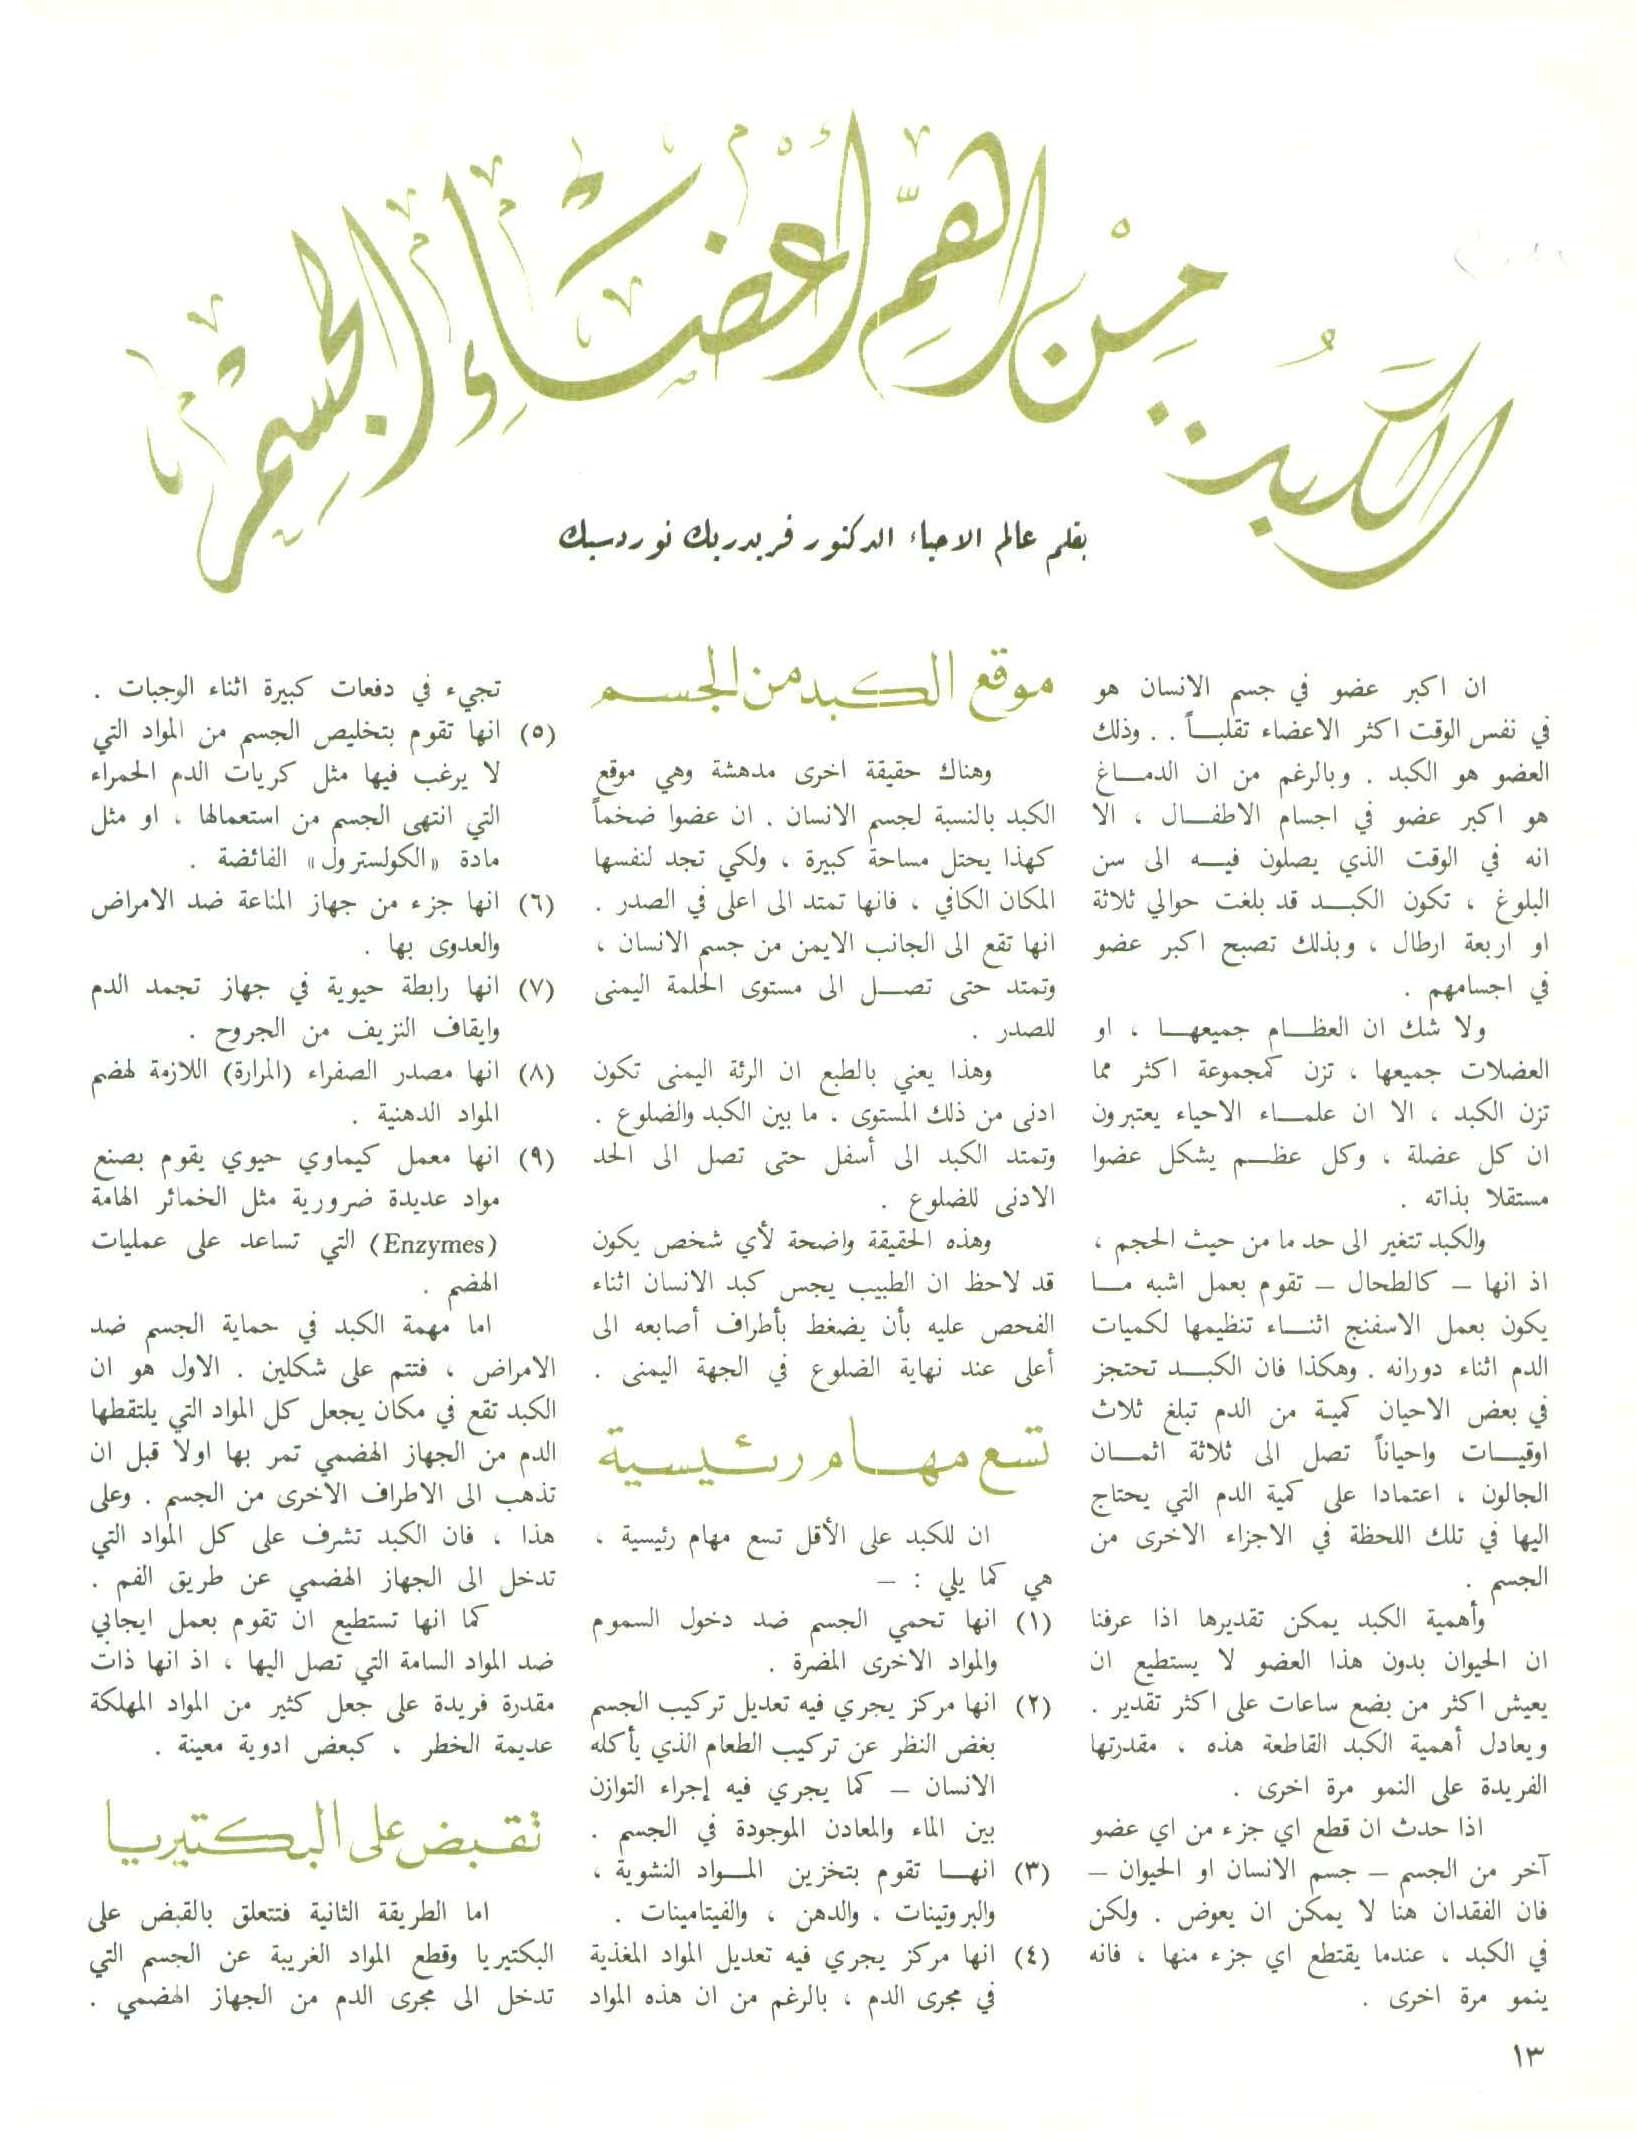 الكَبُد.. مِنْ اهمّ أعْضَاءِ الجِسْم
بقلم عالم الاحياء الدكتور فريدريك نوردسيك
ان اكبر عضو في جسم الانسان هو
في نفس الوقت اكثر الاعضاء تقلباً . . وذلك
العضو هو الكبد . وبالرغم من ان الدماغ
هو اكبر عضو في اجسام الاطفال ، الا
انه في الوقت الذي يصلون فيه الى سن
البلوغ ، تكون الكبد قد بلغت حوالي ثلاثة
او اربعة ارطال ، وبذلك تصبح اكبر عضو
في اجسامهم .
ولا شك ان العظام جميعها ، او
العضلات جميعها ، تزن كمجموعة اكثر مما
تزن الكبد ، الا ان علماء الاحياء يعتبرون
ان كل عضلة ، وكل عظم يشكل عضوا
مستقلا بذاته .
والكبد تتغير الى حد ما من حيث الحجم ،
اذ انها – كالطحال – تقوم بعمل اشبه ما
يكون بعمل الاسفنج اثناء تنظيمها لكميات
الدم اثناء دورانه . وهكذا فان الكبد تحتجز
في بعض الاحيان كمية من الدم تبلغ ثلاث
اوقيات واحياناً تصل الى ثلاثة اثمان
الجالون ، اعتمادا على كمية الدم التي يحتاج
اليها في تلك اللحظة في الاجزاء الاخرى من
الجسم .
وأهمية الكبد يمكن تقديرها اذا عرفنا
ان الحيوان بدون هذا العضو لا يستطيع ان
يعيش اكثر من بضع ساعات على اكثر تقدير .
ويعادل أهمية الكبد القاطعة هذه ، مقدرتها
الفريدة على النمو مرة اخرى .
اذا حدث ان قطع اي جزء من اي عضو
آخر من الجسم – جسم الانسان او الحيوان –
فان الفقدان هنا لا يمكن ان يعوض . ولكن
في الكبد ، عندما يقتطع اي جزء منها ، فانه
ينمو مرة اخرى .
موقع الكبد من الجسم
وهناك حقيقة اخرى مدهشة وهي موقع
الكبد بالنسبة لجسم الانسان . ان عضوا ضخماً
كهذا يحتل مساحة كبيرة ، ولكي تجد لنفسها
المكان الكافي ، فانها تمتد الى اعلى في الصدر .
انها تقع الى الجانب الايمن من جسم الانسان ،
وتمتد حتى تصل الى مستوى الحلمة اليمنى
للصدر .
وهذا يعني بالطبع ان الرئة اليمنى تكون
ادنى من ذلك المستوى ، ما بين الكبد والضلوع .
وتمتد الكبد الى أسفل حتى تصل الى الحد
الادنى للضلوع .
وهذه الحقيقة واضحة لأي شخص يكون
قد لاحظ ان الطبيب يجس كبد الانسان اثناء
الفحص عليه بأن يضغط بأطراف أصابعه الى
أعلى عند نهاية الضلوع في الجهة اليمنى .
تسع مهام رئيسية
ان للكبد على الأقل تسع مهام رئيسية ،
هي كما يلي : –
(١) انها تحمي الجسم ضد دخول السموم
والمواد الاخرى المضرة .
(٢) انها مركز يجري فيه تعديل تركيب الجسم
بغض النظر عن تركيب الطعام الذي يأكله
الانسان – كما يجري فيه إجراء التوازن
بين الماء والمعادن الموجودة في الجسم .
(٣) انها تقوم بتخزين المواد النشوية ،
والبروتينات ، والدهن ، والفيتامينات .
(٤) انها مركز يجري فيه تعديل المواد المغذية
في مجرى الدم ، بالرغم من ان هذه المواد
تجيء في دفعات كبيرة اثناء الوجبات .
(٥) انها تقوم بتخليص الجسم من المواد التي
لا يرغب فيها مثل كريات الدم الحمراء
التي انتهى الجسم من استعمالها ، او مثل
مادة «الكولسترول» الفائضة .
(٦) انها جزء من جهاز المناعة ضد الامراض
والعدوى بها .
(٧) انها رابطة حيوية في جهاز تجمد الدم
وايقاف النزيف من الجروح .
(٨) انها مصدر الصفراء (المرارة) اللازمة لهضم
المواد الدهنية .
(٩) انها معمل كيماوي حيوي يقوم بصنع
مواد عديدة ضرورية مثل الخمائر الهامة
(Enzymes) التي تساعد على عمليات
الهضم .
اما مهمة الكبد في حماية الجسم ضد
الامراض ، فتتم على شكلين . الاول هو ان
الكبد تقع في مكان يجعل كل المواد التي يلتقطها
الدم من الجهاز الهضمي تمر بها اولا قبل ان
تذهب الى الاطراف الاخرى من الجسم . وعلى
هذا ، فان الكبد تشرف على كل المواد التي
تدخل الى الجهاز الهضمي عن طريق الفم .
كما انها تستطيع ان تقوم بعمل ايجابي
ضد المواد السامة التي تصل اليها ، اذ انها ذات
مقدرة فريدة على جعل كثير من المواد المهلكة
عديمة الخطر ، كبعض ادوية معينة .
تقبض على البكتيريا
اما الطريقة الثانية فتتعلق بالقبض على
البكتيريا وقطع المواد الغريبة عن الجسم التي
تدخل الى مجرى الدم من الجهاز الهضمي .
١٣